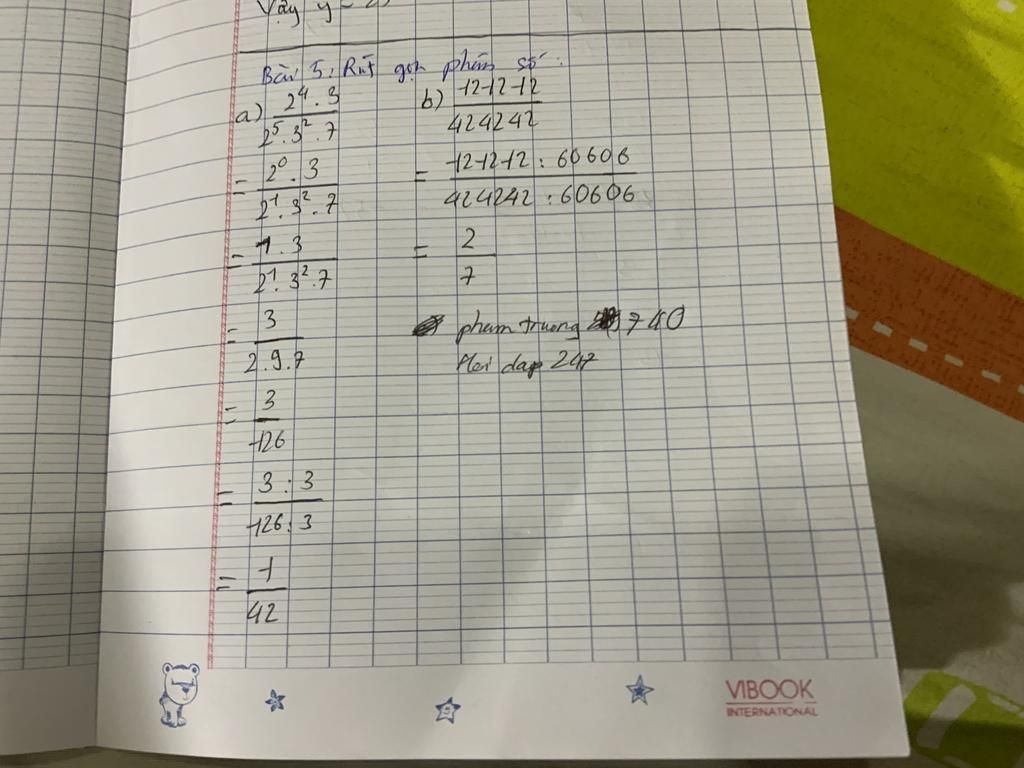 Vậy y =
Bài 5: Rút gọn phân số:
a) 2⁴ . 3 / 2⁵ . 3² . 7
= 2⁰ . 3 / 2¹ . 3² . 7
= 1 . 3 / 2¹ . 3² . 7
= 3 / 2 . 9 . 7
= 3 / 126
= 3 : 3 / 126 : 3
= 1 / 42
b) 121212 / 424242
= 121212 : 60606 / 424242 : 60606
= 2 / 7
pham truong 740
Hoi dap 247
VIBOOK
INTERNATIONAL